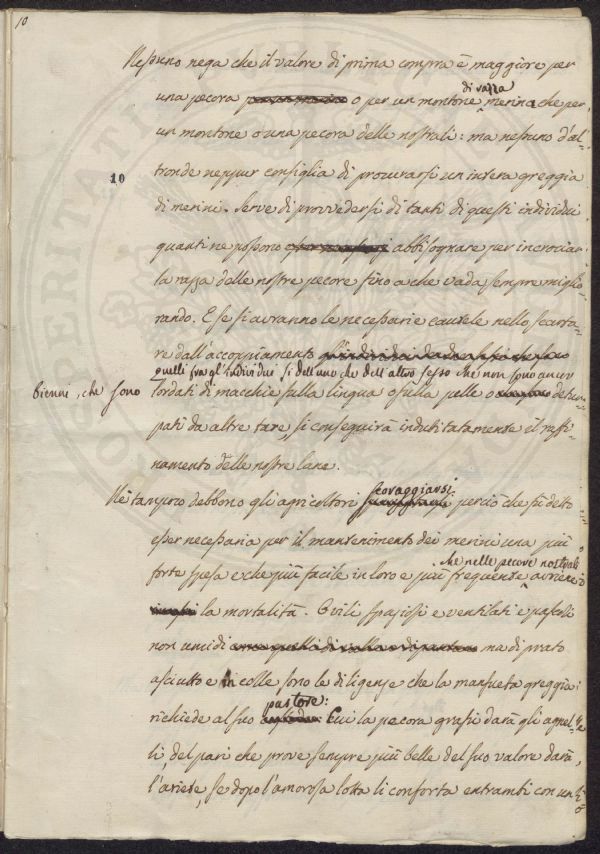 10
Nessuno nega che il valore di prima compra è maggiore per
una pecora o per un montone di razza merina che per
un montone o una pecora delle nostrali: ma nessuno d'al-
tronde neppur consiglia di procurarsi un intera greggia
10
di merini. Serve di provvedersi di tanti di questi individui
quanti ne possono abbisognare per incrociar
la razza delle nostre pecore fino a che vada sempre miglio-
rando. E se si avranno le necessarie cautele nello scarta-
re dall'accoppiamento
quelli fra gl'individui sì dell'uno che dell'altro sesso che non sono ancor
bienni, che sono lordati di macchie sulla lingua o sulla pelle o detur-
pati da altre tare si conseguirà indubitatamente il raffi-
namento delle nostre lane.
Nè tampoco debbono gli agricoltori scoraggiarsi perciò che si è detto
esser necessaria per il mantenimento dei merini una più
forte spesa e che più facile in loro e più frequente che nelle pecore nostrali avviene
la mortalità. Ovili spaziosi e ventilati e pascoli
non umidi ma di prato
asciutto e in colle sono le diligenze che la mansueta greggia
richiede al suo pastore: Cui la pecora grassi darà gli agnel-
li, del pari che prove sempre più belle del suo valore darà
l'ariete, se dopo l'amorosa lotta li conforta entrambi con un